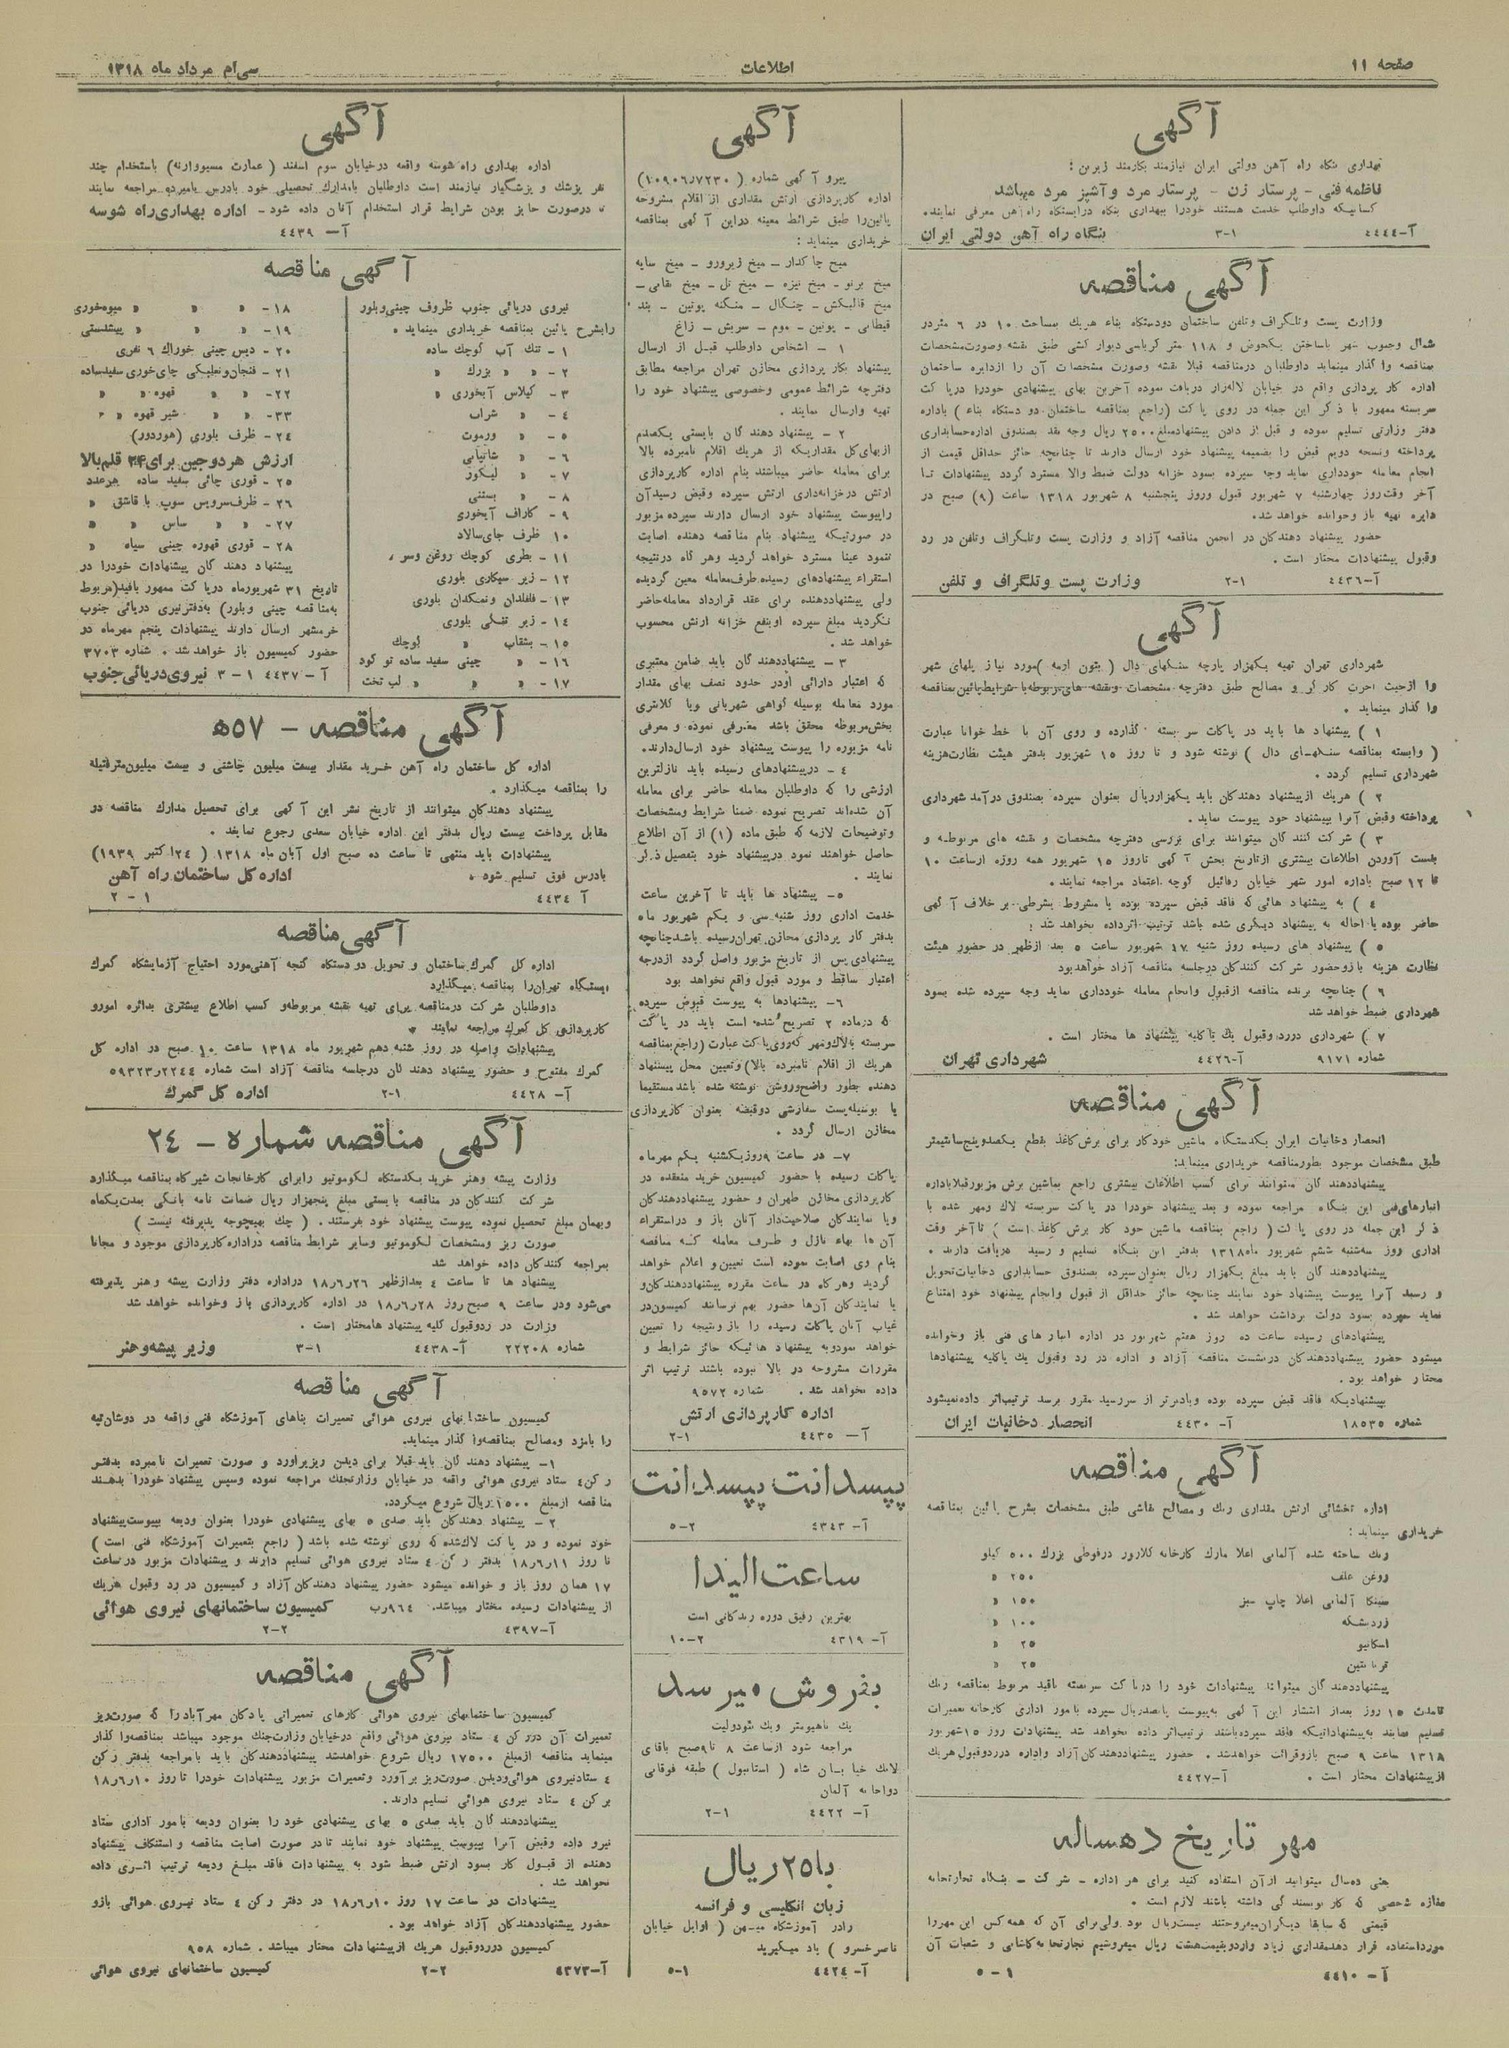 صفحه ۱۱
اطلاعات
سی‌ام مرداد ماه ۱۳۱۸
آگهی
بهداری بنگاه راه آهن دولتی ایران نیازمند بکارمند زیرین؛
قاطمه فنی - پرستار زن - پرستار مرد و آشپز مرد میباشد
کسانیکه داوطلب خدمت هستند خودرا ببهداری بنگاه درایستگاه راه‌آهن معرفی نمایند.
آ-۴۴۴۴ ۱-۳ بنگاه راه آهن دولتی ایران
آگهی مناقصه
وزارت پست وتلگراف وتلفن ساختمان دودستگاه بناء هریك بمساحت ۱۰ در ۶ متردر
شمال وجنوب شهر باساختن یکحوض و ۱۱۸ متر کرباسی دیوار کشی طبق نقشه وصورت‌مشخصات
بمناقصه واگذار مینماید داوطلبان درمناقصه قبلا نقشه وصورت مشخصات آن را ازدایره ساختمان
اداره کار پردازی واقع در خیابان لاله‌زار دریافت نموده آخرین بهای پیشنهادی خودرا درپاکت
سربسته ممهور با ذکر این جمله در روی پاکت (راجع بمناقصه ساختمان دو دستگاه بناء) باداره
دفتر وزارتی تسلیم نموده و قبل از دادن پیشنهادمبلغ ۲۵۰۰ ریال وجه نقد بصندوق اداره‌حسابداری
پرداخته ونسخه دویم قبض را بضمیمه پیشنهاد خود ارسال دارند تا چنانچه حائز حداقل قیمت از
انجام معامله خودداری نماید وجه سپرده بسود خزانه دولت ضبط والا مسترد گردد پیشنهادات تا
آخر وقت‌روز چهارشنبه ۷ شهریور قبول وروز پنجشنبه ۸ شهریور ۱۳۱۸ ساعت (۹) صبح در
دایره تهیه باز وخوانده خواهد شد.
حضور پیشنهاد دهندگان در انجمن مناقصه آزاد و وزارت پست وتلگراف وتلفن در رد
وقبول پیشنهادات مختار است.
آ-۴۴۳۶ ۱-۲ وزارت پست وتلگراف و تلفن
آگهی
شهرداری تهران تهیه یکهزار پارچه سنگهای دال (بتون ارمه) مورد نیاز پلهای شهر
را ازحیث اجرت کارگر و مصالح طبق دفترچه مشخصات ونقشه های مربوطه با شرایط پائین بمناقصه
واگذار مینماید.
۱) پیشنهاد ها باید در پاکات سر بسته گذارده و روی آن با خط خوانا عبارت
(وابسته بمناقصه سنگهای دال) نوشته شود و تا روز ۱۵ شهریور بدفتر هیئت نظارت‌هزینه
شهرداری تسلیم گردد.
۲) هریك ازپیشنهاد دهندگان باید یکهزارریال بعنوان سپرده بصندوق درآمد شهرداری
پرداخته وقبض آنرا بپیشنهاد خود پیوست نماید.
۳) شرکت کنندگان میتوانند برای بررسی دفترچه مشخصات و نقشه های مربوطه و
بدست آوردن اطلاعات بیشتری ازتاریخ پخش آگهی تاروز ۱۵ شهریور همه روزه ازساعت ۱۰
تا ۱۲ صبح باداره امور شهر خیابان رفائیل کوچه اعتماد مراجعه نمایند.
۴) به پیشنهاد هائی که فاقد قبض سپرده بوده یا مشروط بشرطی بر خلاف آگهی
حاضر بوده یا احاله به پیشنهاد دیگری شده باشد ترتیب اثرداده نخواهد شد؛
۵) پیشنهاد های رسیده روز شنبه ۱۷ شهریور ساعت ۵ بعد ازظهر در حضور هیئت
نظارت هزینه بازوحضور شرکت کنندگان درجلسه مناقصه آزاد خواهدبود
۶) چنانچه برنده مناقصه ازقبول وانجام معامله خودداری نماید وجه سپرده شده بسود
شهرداری ضبط خواهد شد
۷) شهرداری دررد وقبول یك یا کلیه پیشنهاد ها مختار است.
شماره ۹۱۷۱ آ-۴۴۲۶ شهرداری تهران
آگهی مناقصه
انحصار دخانیات ایران یکدستگاه ماشین خودکار برای برش کاغذ بقطع یکصدوپنج‌سانتیمتر
طبق مشخصات موجود بطورمناقصه خریداری مینماید:
پیشنهاددهندگان میتوانند برای کسب اطلاعات بیشتری راجع بماشین برش مزبورقبلا باداره
انبارهای‌فنی این بنگاه مراجعه نموده و بعد پیشنهاد خودرا در پاکت سربسته لاك ومهر شده با
ذکر این جمله در روی پاکت (راجع بمناقصه ماشین خود کار برش کاغذ است) تاآخر وقت
اداری روز سه‌شنبه ششم شهریور ماه ۱۳۱۸ بدفتر این بنگاه تسلیم و رسید دریافت دارند.
پیشنهاددهندگان باید مبلغ یکهزار ریال بعنوان سپرده بصندوق حسابداری دخانیات‌تحویل
و رسید آنرا پیوست پیشنهاد خود نمایند چنانچه حائز حداقل از قبول وانجام پیشنهاد خود امتناع
نماید سپرده بسود دولت برداشت خواهد شد.
پیشنهادهای رسیده ساعت ده روز هفتم شهریور در اداره انبار های فنی باز وخوانده
میشود حضور پیشنهاددهندگان درنشست مناقصه آزاد و اداره در رد وقبول یك یاکلیه پیشنهادها
مختار خواهد بود.
پیشنهادیکه فاقد قبض سپرده بوده ویادیرتر از سررسید مقرر برسد ترتیب‌اثر داده‌نمیشود
شماره ۱۸۵۳۵ آ- ۴۴۳۰ انحصار دخانیات ایران
آگهی مناقصه
اداره تخشائی ارتش مقداری رنك و مصالح نقاشی طبق مشخصات بشرح پائین بمناقصه
خریداری مینماید:
رنك ساخته شده آلمانی اعلا مارك کارخانه کلارور درقوطی بزرك ۵۰۰ کیلو
روغن علف ۲۵۰ «
سینکا آلمانی اعلا چاپ سبز ۱۵۰ «
زردشکه ۱۰۰ «
اسکاتیو ۲۵ «
۲۵ «
پیشنهاددهندگان میتوانند پیشنهادات خود را درپاکت سربسته باقید مربوط بمناقصه رنك
تامدت ۱۵ روز بعداز انتشار این آگهی به‌پیوست پانصدریال سپرده بامور اداری کارخانه تعمیرات
تسلیم نمایند به‌پیشنهاداتیکه فاقد سپرده‌باشند ترتیب‌اثر داده نخواهد شد پیشنهادات روز ۱۵شهریور
۱۳۱۸ ساعت ۹ صبح بازوقرائت خواهدشد. حضور پیشنهاددهندگان‌آزاد واداره درردوقبول‌هریك
ازپیشنهادات مختار است. آ-۴۴۲۷
مهر تاریخ دهساله
یعنی ده‌سال میتوانید ازآن استفاده کنید برای هر اداره - شرکت - بنگاه تجارتخانه
مغازه شخصی که کار نویسندگی داشته باشند لازم است.
قیمتی که سابقا دیگران‌میفروختند بیست‌ریال بود ولی‌برای آن که همه‌کس این مهررا
مورداستفاده قرار دهدمقداری زیاد واردوبقیمت‌هشت ریال میفروشیم تجارتخانه‌کاشانی و شعبات آن
آ - ۴۴۱۰ ۱-۵
آگهی
پیرو آگهی شماره (۱۰۹۰۶٫۷۲۳۰)
اداره کارپردازی ارتش مقداری از اقلام مشروحه
پائین‌را طبق شرائط معینه دراین آگهی بمناقصه
خریداری مینماید:
میخ چاکدار - میخ زیرورو - میخ سایه
میخ برنو - میخ نیزه - میخ نل - میخ نقامی -
میخ قالبکش - چنگال - منگنه پوتین - بند
قیطانی - پوتین - موم - سریش - زاغ
۱ - اشخاص داوطلب قبل از ارسال
پیشنهاد بکار پردازی مخازن تهران مراجعه مطابق
دفترچه شرائط عمومی وخصوصی پیشنهاد خود را
تهیه وارسال نمایند.
۲ - پیشنهاد دهندگان بایستی یکصدم
ازبهای‌کل مقداریکه از هریك اقلام نامبرده بالا
برای معامله حاضر میباشند بنام اداره کارپردازی
ارتش درخزانه‌داری ارتش سپرده وقبض رسیدآن
راپیوست پیشنهاد خود ارسال دارند سپرده مزبور
در صورتیکه پیشنهاد بنام مناقصه دهنده اصابت
ننمود عینا مسترد خواهد گردید وهر گاه درنتیجه
استقراء پیشنهادهای رسیده طرف‌معامله معین گردیده
ولی پیشنهاددهنده برای عقد قرارداد معامله‌حاضر
نگردید مبلغ سپرده اوبنفع خزانه ارتش محسوب
خواهد شد.
۳ - پیشنهاددهندگان باید ضامن معتبری
که اعتبار دارائی اودر حدود نصف بهای مقدار
مورد معامله بوسیله گواهی شهربانی ویا کلانتری
بخش‌مربوطه محقق باشد معرفی نموده و معرفی
نامه مزبوره را پیوست پیشنهاد خود ارسال‌دارند.
۴ - درپیشنهادهای رسیده باید نازلترین
ارزشی را که داوطلبان معامله حاضر برای معامله
آن شده‌اند تصریح نموده ضمنا شرایط ومشخصات
وتوضیحات لازمه که طبق ماده (۱) از آن اطلاع
حاصل خواهند نمود درپیشنهاد خود بتفصیل ذکر
نمایند.
۵- پیشنهاد ها باید تا آخرین ساعت
خدمت اداری روز شنبه سی و یکم شهریور ماه
بدفتر کار پردازی مخازن تهران‌رسیده باشدچنانچه
پیشنهادی پس از تاریخ مزبور واصل گردد ازدرجه
اعتبار ساقط و مورد قبول واقع نخواهد بود
۶- پیشنهادها به پیوست قبوض سپرده
که درماده ۲ تصریح شده است باید در پاکت
سربسته بالاك‌ومهر که‌روی‌پاکت عبارت (راجع‌بمناقصه
هریك از اقلام نامبرده بالا) وتعیین محل پیشنهاد
دهنده بطور واضح‌وروشن نوشته شده باشد مستقیما
یا بوسیله‌پست سفارشی دوقبضه بعنوان کارپردازی
مخازن ارسال گردد.
۷- در ساعت ۹روزیکشنبه یکم مهرماه
پاکات رسیده با حضور کمیسیون خرید منعقده در
کارپردازی مخازن طهران و حضور پیشنهاددهندگان
ویا نمایندگان صلاحیت‌دار آنان باز و دراستقراء
آن‌ها بهاء نازل و طرف معامله که مناقصه
بنام وی اصابت نموده است تعیین و اعلام خواهد
گردید وهرگاه در ساعت مقرره پیشنهاددهندگان‌و
یا نمایندگان آن‌ها حضور بهم نرسانند کمیسیون‌در
غیاب آنان پاکات رسیده را باز ونتیجه را تعیین
خواهد نمودوبه پیشنهاد هائیکه حائز شرایط و
مقررات مشروحه در بالا نبوده باشند ترتیب اثر
داده نخواهد شد. شماره ۹۵۷۲
اداره کارپردازی ارتش
آ- ۴۴۳۵ ۱-۲
پپسدانت پپسدانت
آ- ۴۳۴۳ ۲-۵
ساعت الیندا
بهترین رفیق دوره زندگانی است
آ- ۴۳۱۹ ۲-۱۰
بفروش میرسد
یك تاهپومتر ویك شودولیت
مراجعه شود ازساعت ۸ تا۹صبح باقای
لانك خیابان شاه (استامبول) طبقه فوقانی
دواخانه آلمان
آ- ۴۴۲۲ ۱-۲
با۲۵ ریال
زبان انگلیسی و فرانسه
رادر آموزشگاه میهن (اوایل خیابان
ناصرخسرو) یاد میگیرید
آ- ۴۴۲۴ ۱-۵
آگهی
اداره بهداری راه شوسه واقعه درخیابان سوم اسفند (عمارت مسیووارنه) باستخدام چند
نفر پزشك و پزشگیار نیازمند است داوطلبان بامدارك تحصیلی خود بادرس نامبرده مراجعه نمایند
تا درصورت حایز بودن شرایط قرار استخدام آنان داده شود - اداره بهداری راه شوسه
آ- ۴۴۳۹
آگهی مناقصه
نیروی دریائی جنوب ظروف چینی‌وبلور
رابشرح پائین بمناقصه خریداری مینماید.
۱ - تنك آب کوچك ساده
۲ - « « بزرك «
۳ - گیلاس آبخوری «
۴ - « شراب
۵ - « ورموت
۶ - « شانپانی
۷ - « لیکور
۸ - « بستنی
۹ - کاراف آبخوری
۱۰ ظرف جای‌سالاد
۱۱ - بطری کوچك روغن وسر،
۱۲ - زیر سیگاری بلوری
۱۳ - فلفلدان ونمکدان بلوری
۱۴ - زیر تنگی بلوری
۱۵ - بشقاب « کوچك
۱۶ - « چینی سفید ساده تو گود
۱۷ - « « « لب تخت
۱۸ - « « « میوه‌خوری
۱۹ - « « « پیشدستی
۲۰ - دیس چینی خوراك ۶ نفری
۲۱ - فنجان‌ونعلبکی چای‌خوری سفیدساده
۲۲ - « قهوه « «
۲۳ - « شیر قهوه « «
۲۴ - ظرف بلوری (هوردور)
ارزش هردوجین برای ۲۴ قلم‌بالا
۲۵ - قوری چائی سفید ساده هرعدد
۲۶ - ظرف‌سرویس سوپ با قاشق «
۲۷ - « « ساس « «
۲۸ - قوری قهوه چینی سیاه «
پیشنهاد دهندگان پیشنهادات خودرا در
تاریخ ۳۱ شهریورماه درپاکت ممهور باقید(مربوط
به‌مناقصه چینی وبلور) به‌دفترنیری دریائی جنوب
خرمشهر ارسال دارند پیشنهادات پنجم مهرماه در
حضور کمیسیون باز خواهدشد. شماره ۳۷۰۳
آ- ۴۴۳۷ ۱-۳ نیروی دریائی جنوب
آگهی مناقصه - ۵۷ه
اداره کل ساختمان راه آهن خرید مقدار بیست میلیون چاشنی و بیست میلیون‌مترفتیله
را بمناقصه میگذارد.
پیشنهاد دهندگان میتوانند از تاریخ نشر این آگهی برای تحصیل مدارك مناقصه در
مقابل پرداخت بیست ریال بدفتر این اداره خیابان سعدی رجوع نمایند.
پیشنهادات باید منتهی تا ساعت ده صبح اول آبان ماه ۱۳۱۸ (۲۴اکتبر ۱۹۳۹)
بادرس فوق تسلیم شود. اداره کل ساختمان راه آهن
آ ۴۴۳۴ ۱ - ۲
آگهی مناقصه
اداره کل گمرك ساختمان و تحویل دو دستگاه گنجه آهنی‌مورد احتیاج آزمایشگاه گمرك
ایستگاه تهران‌را بمناقصه میگذارد
داوطلبان شرکت درمناقصه برای تهیه نقشه مربوطه‌و کسب اطلاع بیشتری بدائره امورو
کارپردازی کل گمرك مراجعه نمایند.
پیشنهادات واصله در روز شنبه دهم شهریور ماه ۱۳۱۸ ساعت ۱۰ صبح در اداره کل
گمرك مفتوح و حضور پیشنهاد دهندگان درجلسه مناقصه آزاد است شماره ۲۲۴۴ر۵۹۳۲۳
آ- ۴۴۲۸ ۱-۲ اداره کل گمرك
آگهی مناقصه شماره - ۲۴
وزارت پیشه وهنر خرید یکدستگاه لکوموتیو رابرای کارخانجات شیرگاه بمناقصه میگذارد
شرکت کنندگان در مناقصه بایستی مبلغ پنجهزار ریال ضمانت نامه بانکی بمدت‌یکماه
وبهمان مبلغ تحصیل نموده پیوست پیشنهاد خود بفرستند. (چك بهیچوجه پذیرفته نیست)
صورت ریز ومشخصات لکوموتیو وسایر شرایط مناقصه دراداره‌کارپردازی موجود و مجانا
بمراجعه کنندگان داده خواهد شد
پیشنهاد ها تا ساعت ۴ بعدازظهر ۲۶ر۶ر۱۸ دراداره دفتر وزارت پیشه وهنر پذیرفته
می‌شود ودر ساعت ۹ صبح روز ۲۸ر۶ر۱۸ در اداره کارپردازی باز وخوانده خواهد شد
وزارت در ردوقبول کلیه پیشنهاد هامختار است.
شماره ۲۲۲۰۸ آ- ۴۴۳۸ ۱-۳ وزیر پیشه‌وهنر
آگهی مناقصه
کمیسیون ساختمانهای نیروی هوائی تعمیرات بناهای آموزشگاه فنی واقعه در دوشان‌تپه
را بامزد ومصالح بمناقصه‌واگذار مینماید.
۱- پیشنهاد دهندگان باید قبلا برای دیدن ریزبرآورد و صورت تعمیرات نامبرده بدفتر
رکن۴ ستاد نیروی هوائی واقعه در خیابان وزارتجنك مراجعه نموده وسپس پیشنهاد خودرا بدهند
مناقصه ازمبلغ ۱۵۰۰ریال شروع میگردد.
۲- پیشنهاد دهندگان باید صدی ۵ بهای پیشنهادی خودرا بعنوان ودیعه بپیوست‌پیشنهاد
خود نموده و در پاکت لاك‌شده که روی نوشته شده باشد (راجع بتعمیرات آموزشگاه فنی است)
تا روز ۱۱ر۶ر۱۸ بدفتر رکن ۴ ستاد نیروی هوائی تسلیم دارند و پیشنهادات مزبور در ساعت
۱۷ همان روز باز و خوانده میشود حضور پیشنهاد دهندگان آزاد و کمیسیون در رد وقبول هریك
از پیشنهادات رسیده مختار میباشد. ۹۶۴رب کمیسیون ساختمانهای نیروی هوائی
آ-۴۳۹۷ ۲-۲
آگهی مناقصه
کمیسیون ساختمانهای نیروی هوائی کارهای تعمیراتی پادگان مهرآبادرا که صورت‌ریز
تعمیرات آن دررکن ۴ ستاد نیروی هوائی واقع درخیابان وزارت‌جنك موجود میباشد بمناقصه‌واگذار
مینماید مناقصه ازمبلغ ۱۷۵۰۰ ریال شروع خواهدشد پیشنهاددهندگان باید بامراجعه بدفتر رکن
۴ ستادنیروی هوائی‌ودیدن صورت‌ریز برآورد وتعمیرات مزبور پیشنهادات خودرا تا روز ۱۰ر۶ر۱۸
برکن ۴ ستاد نیروی هوائی تسلیم دارند.
پیشنهاددهندگان باید صدی ۵ بهای پیشنهادی خود را بعنوان ودیعه بامور اداری ستاد
نیرو داده وقبض آنرا بپیوست پیشنهاد خود نمایند تادر صورت اصابت مناقصه و استنکاف پیشنهاد
دهنده از قبول کار بسود ارتش ضبط شود به پیشنهادات فاقد مبلغ ودیعه ترتیب اثری داده
نخواهد شد.
پیشنهادات در ساعت ۱۷ روز ۱۰ر۶ر۱۸ در دفتر رکن ۴ ستاد نیروی هوائی بازو
حضور پیشنهاددهندگان آزاد خواهد بود.
کمیسیون درردوقبول هریك ازپیشنهادات مختار میباشد. شماره ۹۵۸
آ-۴۳۷۳ ۲-۲ کمیسیون ساختمانهای نیروی هوائی